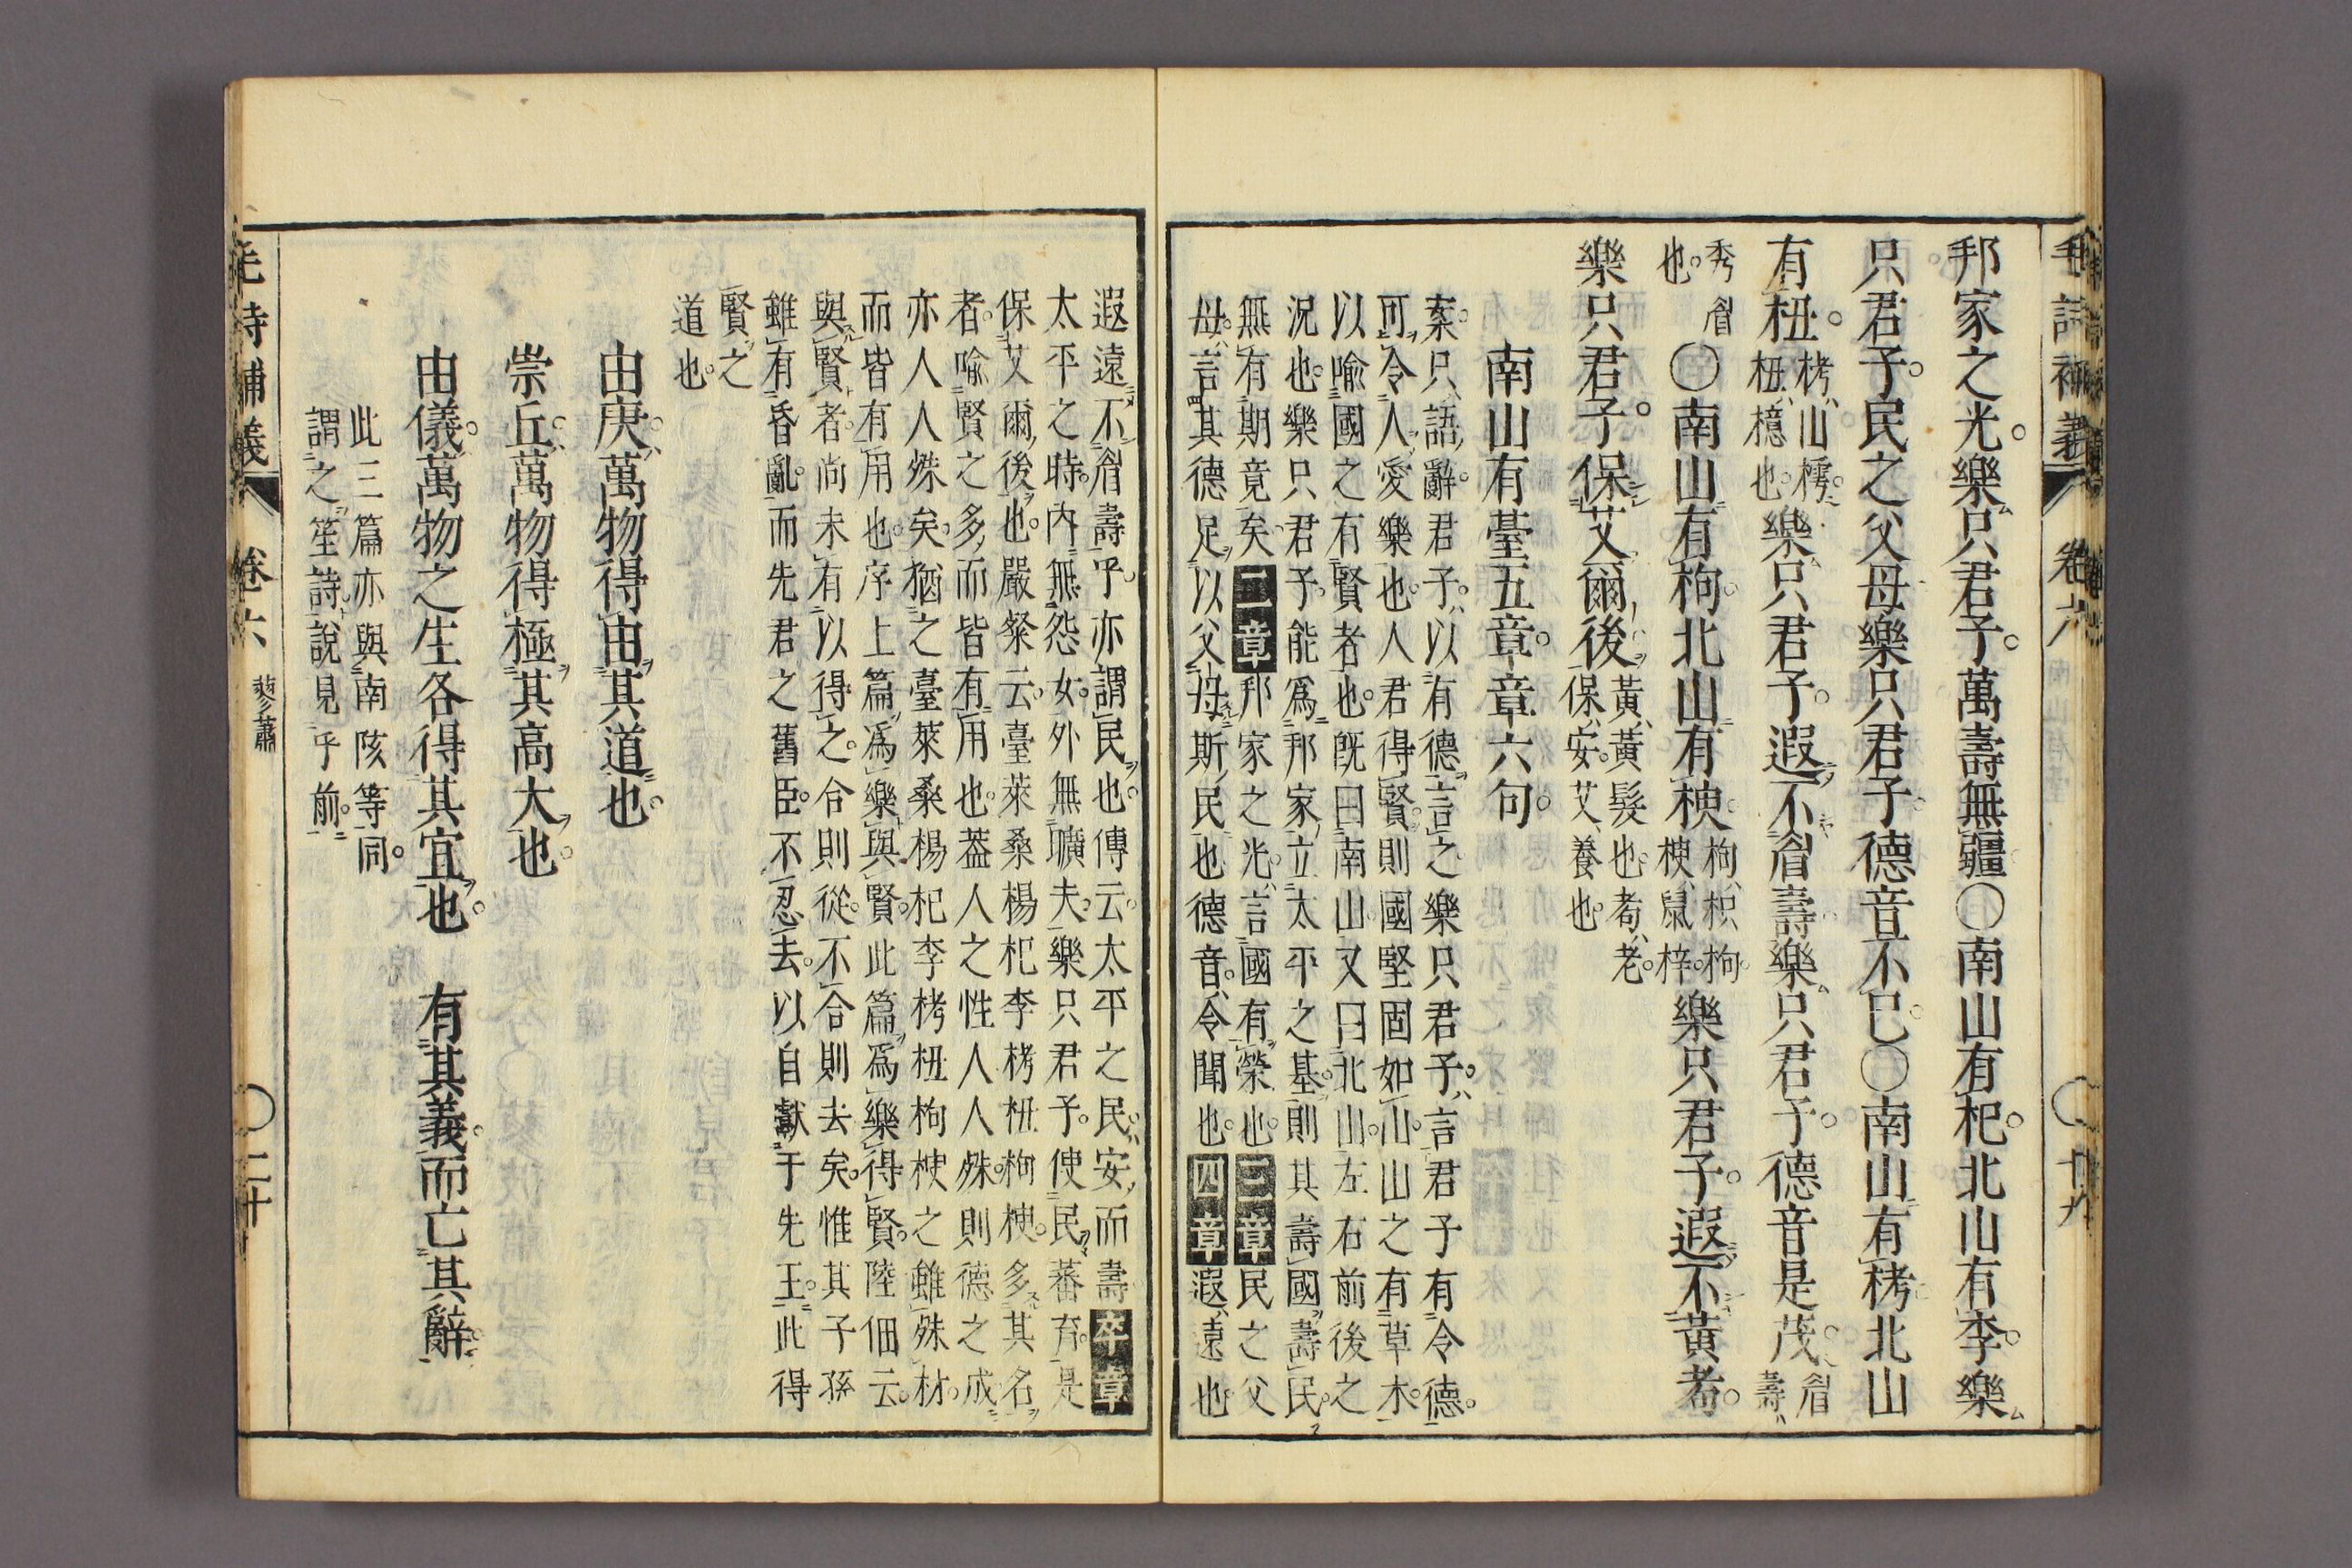 毛詩補義 卷六 十九
邦家之光。樂只君子。萬壽無疆○南山有杞。北山有李。樂
只君子。民之父母樂只君子。德音不已。○南山有栲北山
有杻。栲、山樗。杻、檍也。樂只君子。遐不眉壽樂只君子。德音是茂。眉壽、
秀眉也。○南山有枸北山有楰。枸、枳枸。楰、鼠梓。樂只君子。遐不黃耇。
樂只君子。保艾爾後。黃、黃髮也。耇、老。保、安。艾、養也。
南山有臺五章。章六句。
案。只、語辭。君子。以有德言之樂只君子。言君子有令德。
可令人愛樂也。人君得賢。則國堅固如山。山之有草木。
以喻國之有賢者也。旣曰南山。又曰北山。左右前後之
況也。樂只君子。能爲邦家。立太平之基。則其壽國。壽民。
無有期竟矣。二章邦家之光。言國有榮也。三章民之父
母。言其德足以父母斯民也德音。令聞也。四章遐、遠也
遐遠不眉壽乎。亦謂民也。傳云。太平之民。安而壽卒章
太平之時。內無怨女。外無曠夫。樂只君子。使民蕃育。是
保艾爾後也。嚴粲云。臺萊桑楊杞李栲杻枸楰。多其名
者。喻賢之多。而皆有用也。蓋人之性人人殊。則德之成
亦人人殊矣。猶之臺萊桑楊杞李栲杻枸楰之雖殊材。
而皆有用也。序上篇爲樂與賢。此篇爲樂得賢。陸佃云。
與賢者。尚未有以得之。合則從。不合則去矣。惟其子孫
雖有昏亂。而先君之舊臣。不忍去。以自獻于先王。此得
賢之
道也。
由庚。萬物得由其道也。
崇丘。萬物得極其高大也。
由儀。萬物之生各得其宜也。 有其義。而亡其辭。
此三篇亦與南陔等同。
謂之笙詩。說見乎前。
毛詩補義 卷六 蓼蕭 二十